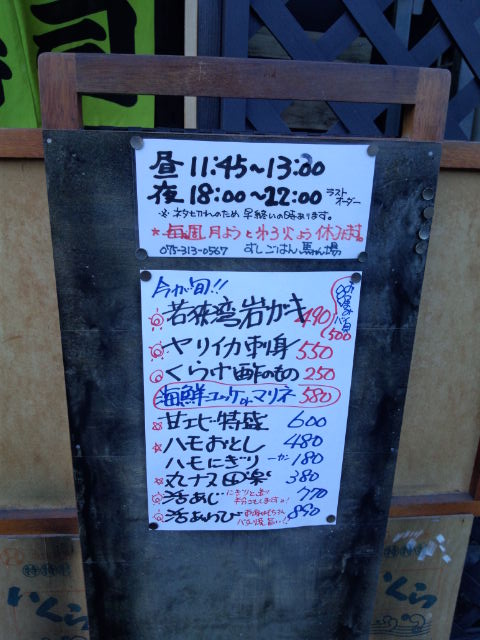 寿司
昼 11:45~13:30
夜 18:00~22:00 ラストオーダー
※ネタ切れのため早終いの時あります。
★毎週月ようと第3火よう休みます。
075-313-0567 すしごはん 馬ん場
今が旬!!
若狭湾岩ガキ 490
ヤリイカ刺身 550
くらげ酢のもの 250
海鮮ユッケorマリネ 580
甘エビ特盛 600
ハモおとし 480
ハモにぎり 一カン 180
丸ナス田楽 380
活あじ 770
活あわび 890
いくら
いくら